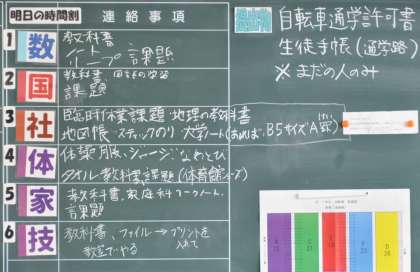 明日の時間割 連絡事項
1 数 教科書
ノート
課題
2 国 教科書
課題
3 社 臨時休業課題 地理の教科書
地図帳 スティックのり 大学ノート B5サイズA
4 体 体操服、ジャージ なわとび
タオル
5 家 教科書、家庭科ワークノート、
課題
6 技 教科書、ファイル→プリントを
入れて
教室でやる
提出物
自転車通学許可書
生徒手帳(通学路)
※まだの人のみ